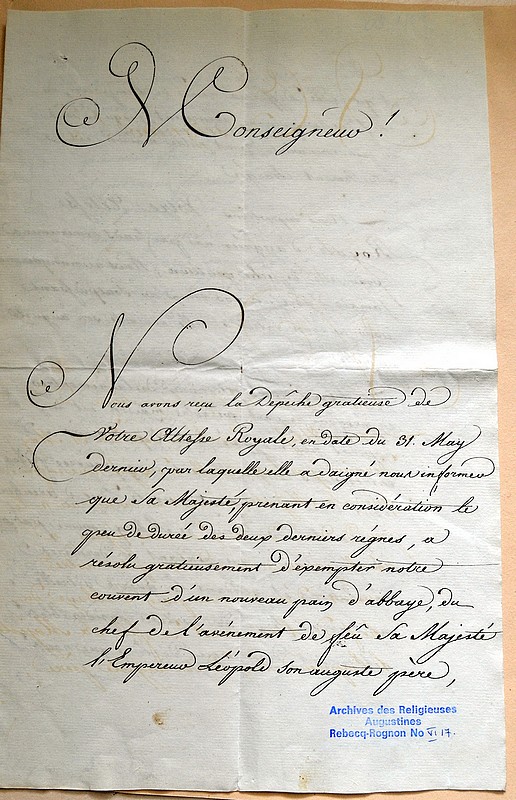 Monseigneur!
Nous avons reçu la Depêche gratieuse de
Votre Altesse Royale, en date du 31. May
dernier, par laquelle elle a daigné nous informer
que Sa Majesté, prenant en considération le
peu de durée des deux derniers régnes, a
résolu gratieusement d'exempter notre
couvent d'un nouveau pain d'abbaye, du
chef de l'avénement de feû Sa Majesté
l'Empereur Léopold son auguste père,
Archives des Religieuses
Augustines
Rebecq-Rognon No VI 17.